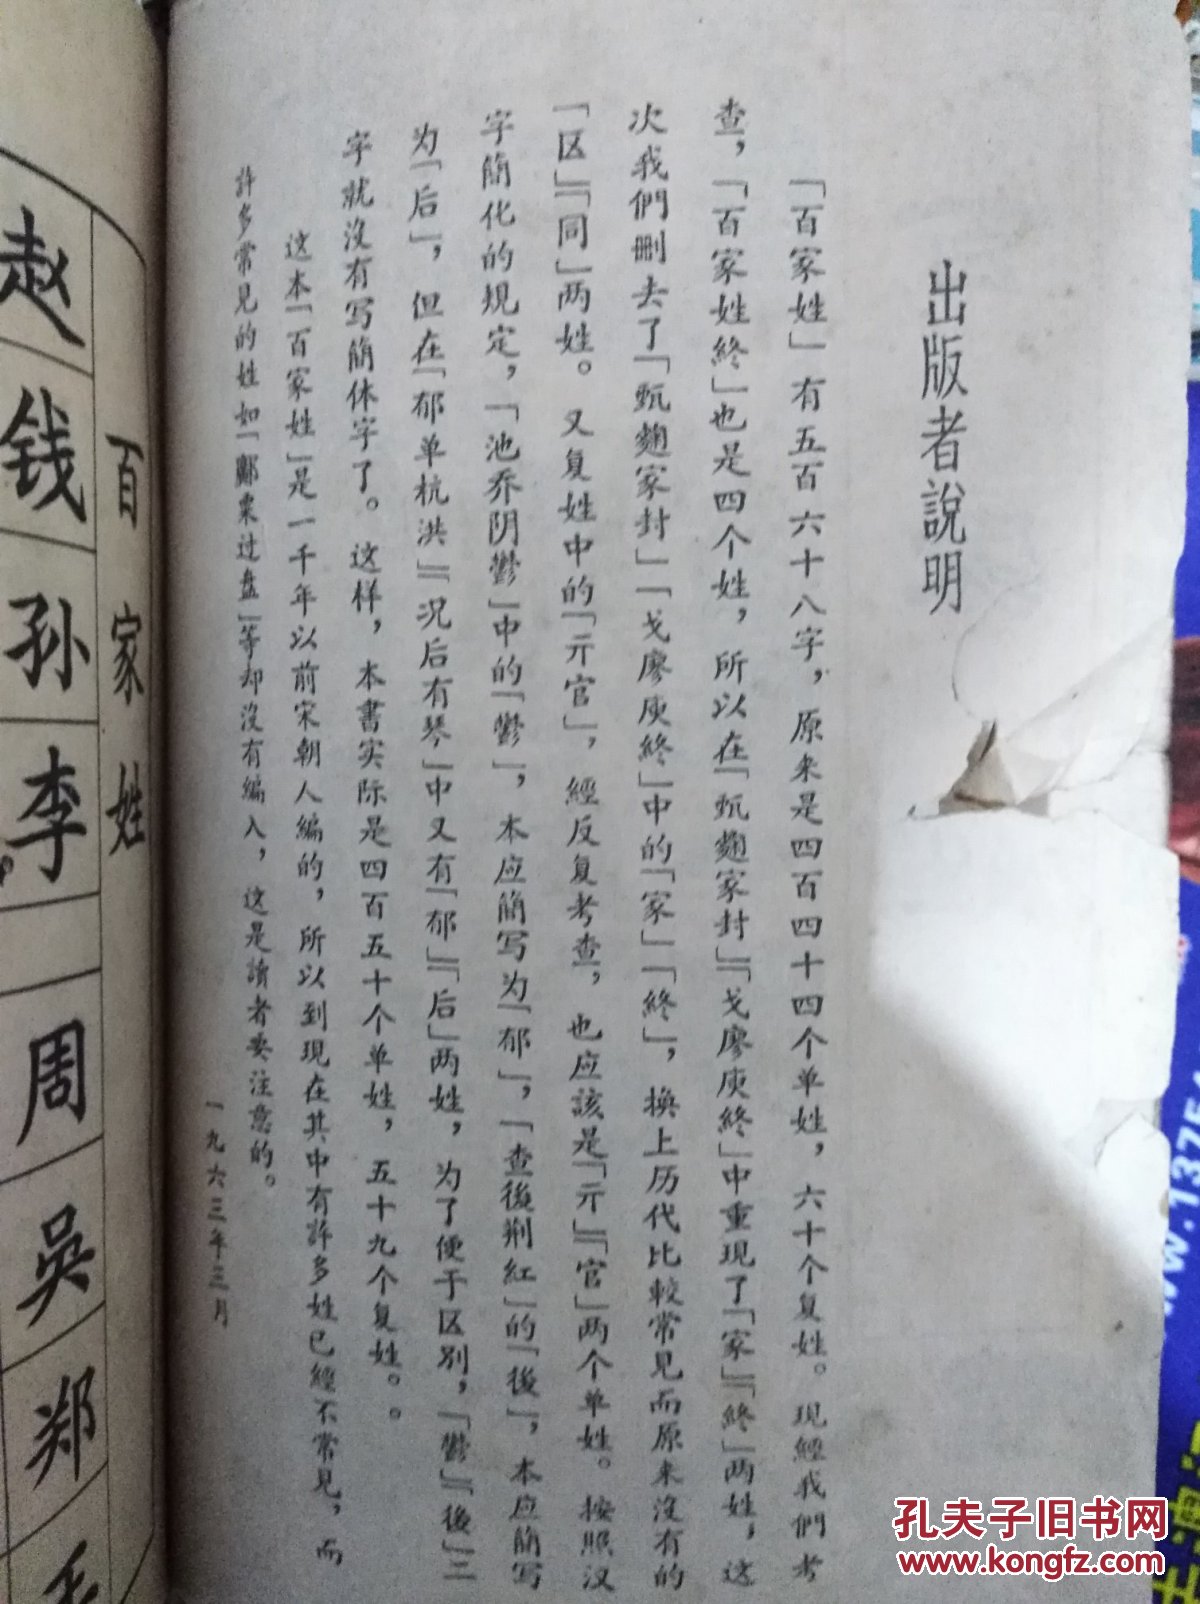 出版者說明
「百家姓」有五百六十八字，原来是四百四十四个单姓，六十个复姓。現經我們考
查，「百家姓終」也是四个姓，所以在「甄麴家封」「戈廖庾終」中重现了「家」「終」两姓，这
次我們刪去了「甄麴家封」「戈廖庾終」中的「家」「終」，换上历代比較常見而原来沒有的
「区」「同」两姓。又复姓中的「亓官」，經反复考查，也应該是「亓」「官」两个单姓。按照汉
字簡化的規定，「池乔阴鬱」中的「鬱」，本应簡写为「郁」，「查後荆紅」的「後」，本应簡写
为「后」，但在「郁单杭洪」「况后有琴」中又有「郁」「后」两姓，为了便于区别，「鬱」「後」二
字就沒有写簡体字了。这样，本書实际是四百五十个单姓，五十九个复姓。。
这本「百家姓」是一千年以前宋朝人編的，所以到現在其中有許多姓已經不常見，而
許多常見的姓如「鄺粟过盘」等却沒有編入，这是讀者要注意的。
一九六三年三月
百家姓
赵钱孙李
周吳郑
孔夫子旧书网
www.kongfz.com
W.137E